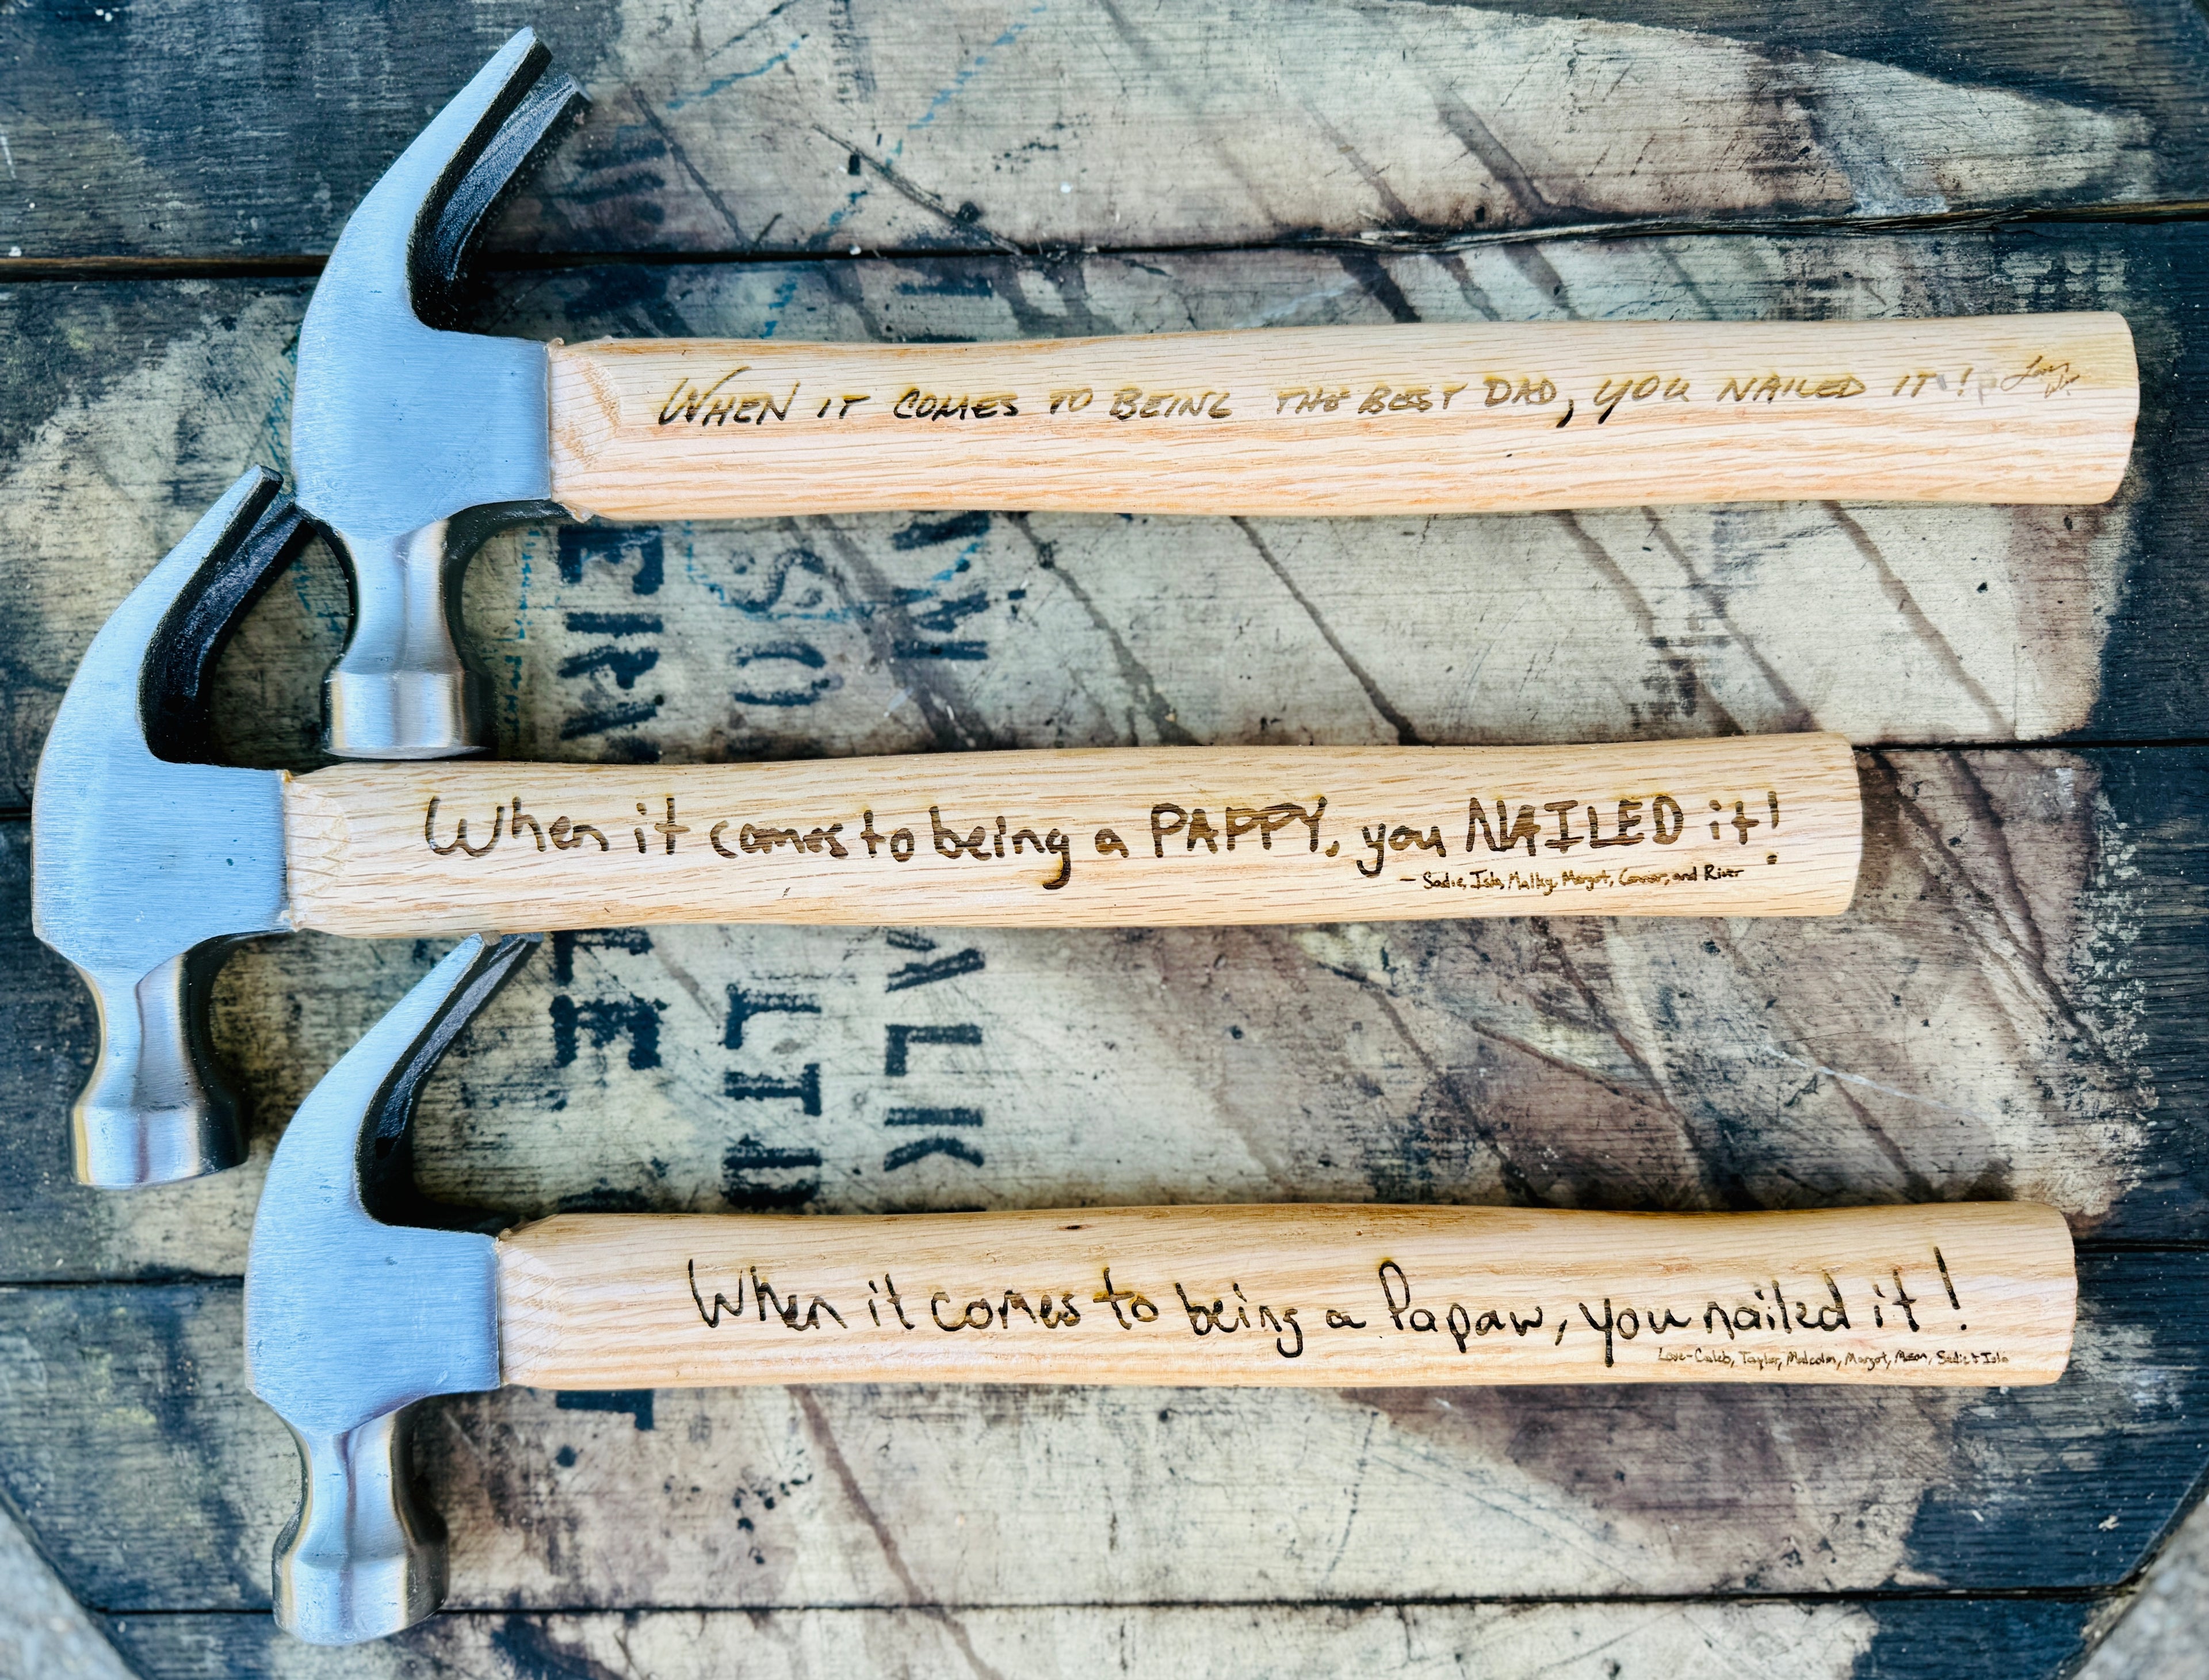 WHEN IT COMES TO BEING THE BEST DAD, YOU NAILED IT!
When it comes to being a PAPPY, you NAILED it!
- Sadie, Isla, Malky, Margot, Connor, and River
When it comes to being a Papaw, you nailed it!
Love - Caleb, Taylor, Malcolm, Margot, Sadie + Isla
ERV
SO
LE
LTD
ALK